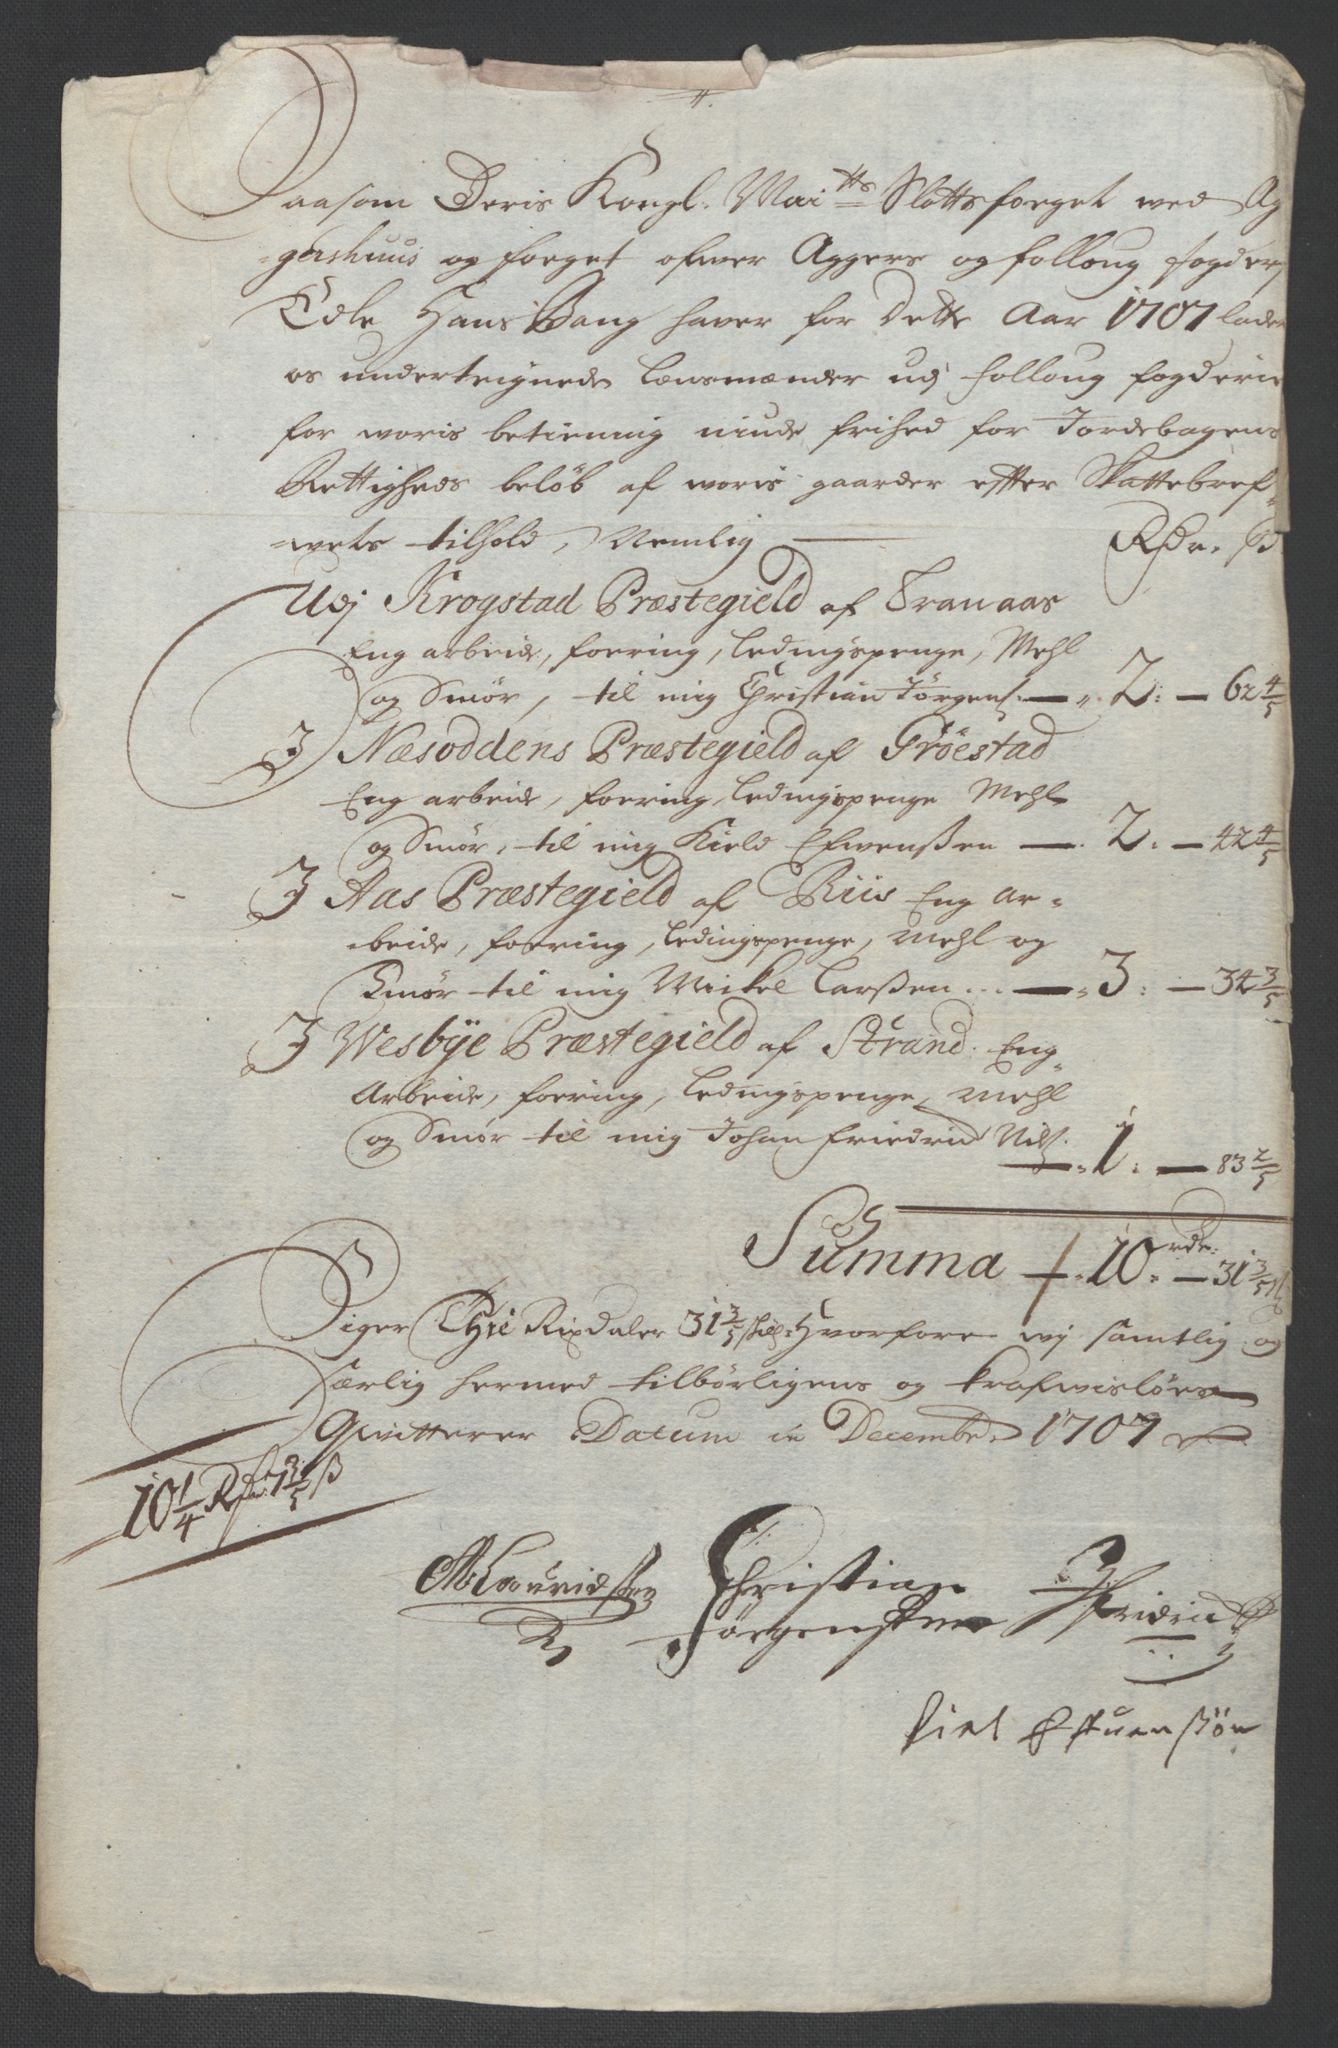 Saasom Deris Kongl. Maitts Slottsfoeget wed Ag
=gershuus og foeget ofwer Aggers og follong fogderj
Edle Hans Bang hafver for dette Aar 1707 lade
os underteignede lænsmænder udj follong fogderie
for woris betiening niude frihed for Jordebogens
Rettigheds beløb af woris gaarder effter Skattebref=
=wets tilhold, Nemlig —— Rdr. ß
Udj Krogstad Præstegield af Tranaas
Eng arbeide, foering, ledingspenge, Mehl
og Smør, til mig Christian Jörgens. — 2: — 62 4/5
J Næsoddens Præstegield af Gröestad
Eng arbeide, foering, ledingspenge Mehl
og Smör, til mig Kield Efwenßen — 2: — 42 4/5
J Aas Præstegield af Riis Eng ar=
=beide, foering, ledingspenge, Mehl og
Smør til mig Mickel Larßen — 3: — 34 3/5
J Wesbÿe Præstegield af Strand Eng
Arbeide, foering, ledingspenge, Mehl
og Smör til mig Johan Friedrich Nilß.
— 1: — 83 2/5
Summa — 10 rdr: — 31 3/5 ß
Siger Thje Rixdaler 31 3/5 skill: Hvorfore wj samtlig og
særlig hermed tilbørligens og krafwisløes
Qvitterer Datum in Decembr. 1707
10 1/4 Rdr. 7 3/5 ß
Lauridssen Christian
Jörgensen
Kiel Effuenßön